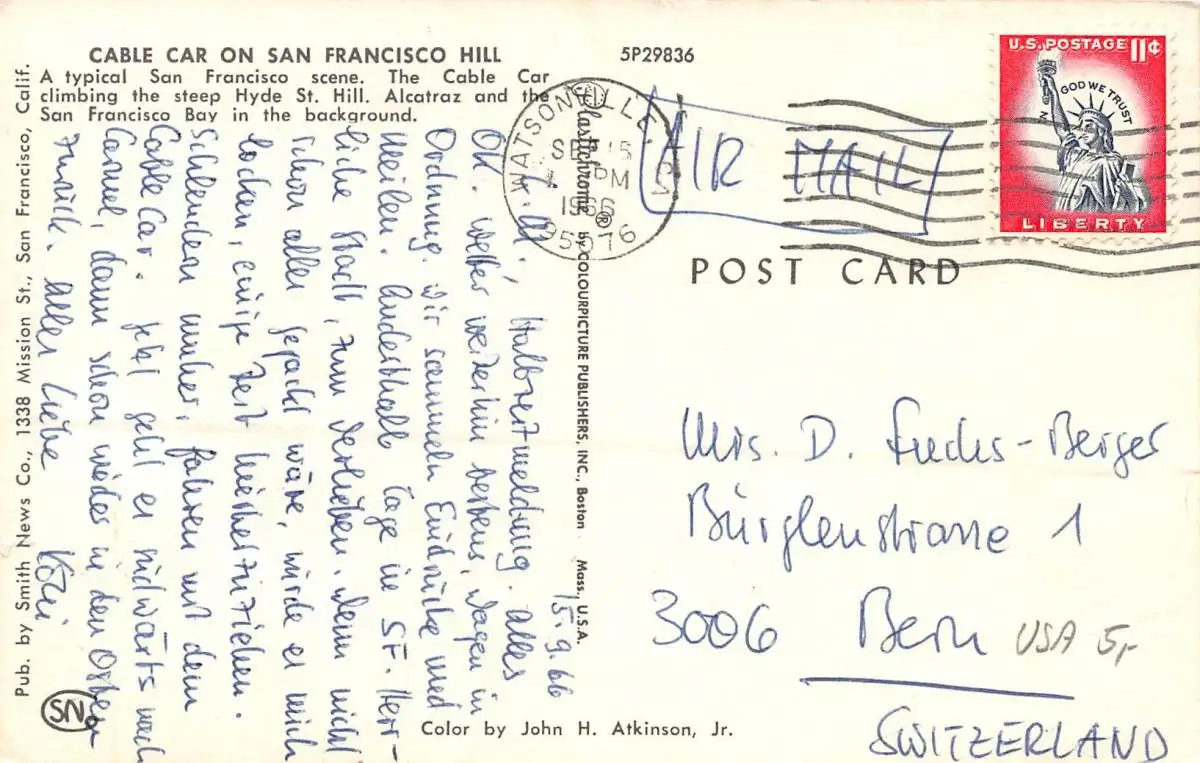 CABLE CAR ON SAN FRANCISCO HILL
A typical San Francisco scene. The Cable Car
climbing the steep Hyde St. Hill. Alcatraz and the
San Francisco Bay in the background.
5P29836
Pub. by Smith News Co., 1338 Mission St., San Francisco, Calif.
SN
Plastichrome ® by COLOURPICTURE PUBLISHERS, INC., Boston Mass., U.S.A.
Color by John H. Atkinson, Jr.
POST CARD
U.S. POSTAGE 11¢
IN GOD WE TRUST
LIBERTY
WATSONVILLE
SEP 15
PM
1966
95076
AIR MAIL
15.9.66
Halbzeitmeldung. Alles
OK. Wetter weiterhin bestens, Wagen in
Ordnung. Wir sammeln Eindrücke und
Meilen. Anderthalb Tage in SF. Herr-
liche Stadt, zum Verlieben. Wenn nicht
schon alles gesagt wäre, würde es mich
locken, einige Zeit hierherzuziehen.
Schlendern umher, fahren mit dem
Cable Car. Jetzt geht es südwärts nach
Carmel, dann schon wieder in den Osten
zurück. Alles Liebe
Mrs. D. Fuchs-Berger
Bürglenstrasse 1
3006 Bern
USA 5,-
SWITZERLAND